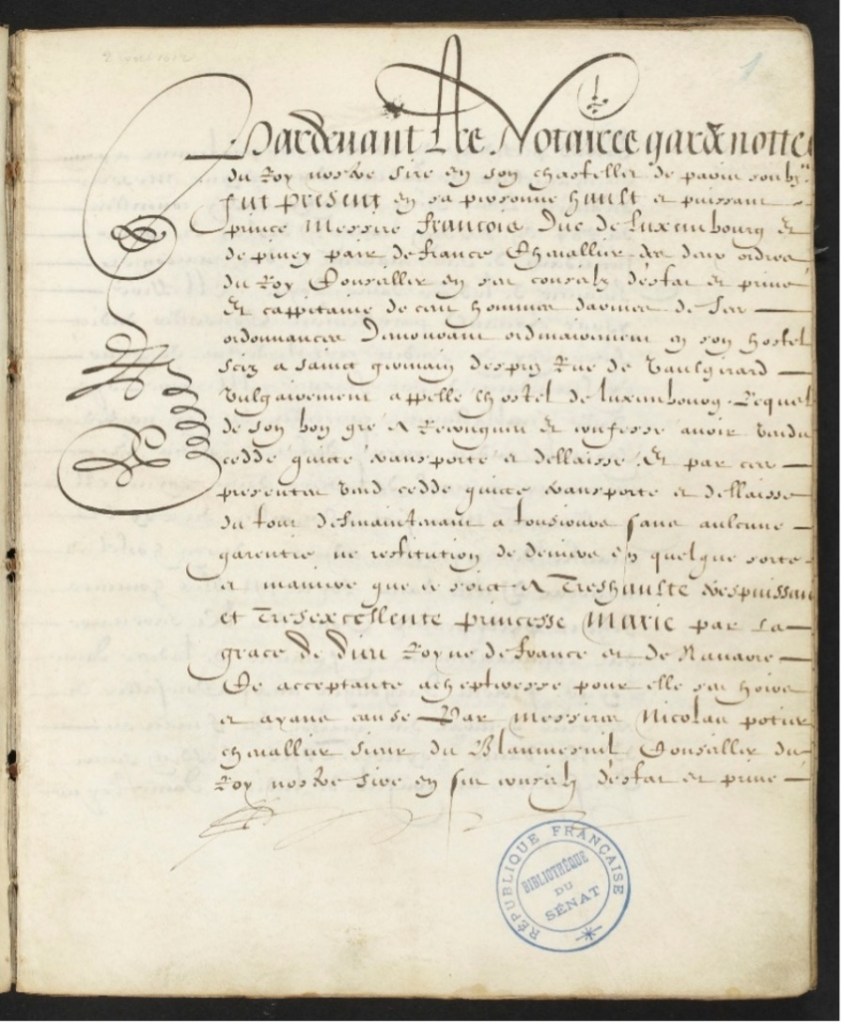 1
Pardevant Les Notaires gardenottes
du Roy nostre Sire en son chastellet de paris soubz.rs
fut present en sa personne hault et puissant
prince Messire francois Duc de luxembourg et
de piney pair de france Chevallier des deux ordres
du Roy Conseiller en ses conseilz destat et prive
Et cappitaine de cent hommes darmes de ses
ordonnances Demourant ordinairement en son hostel
Seiz a sainct germain desprez Rue de Vaulgirard
Vulgairement appelle lhostel de luxembourg. Lequel
de son bon gre A Recongneu et confesse avoir Vendu
cedde quicte transporte et dellaisse Et par ces
presentes Vend cedde quicte transporte et dellaisse
du tour desmaintenant a tousjours sans aulcune
garentie ne restitution de deniers en quelque sorte
et maniere que ce soict A Treshaulte trespuissante
et Tresexcellente princesse Marie par La
grace de dieu Royne de france et de Navarre
Ce acceptante achepteresse pour elle ses hoirs
et ayans cause Par Messires Nicolas potier
chevallier sieur du Blancmesnil Conseiller du
Roy nostre Sire en ses conseilz destat et prive
RÉPUBLIQUE FRANÇAISE
BIBLIOTHÈQUE
DU
SÉNAT